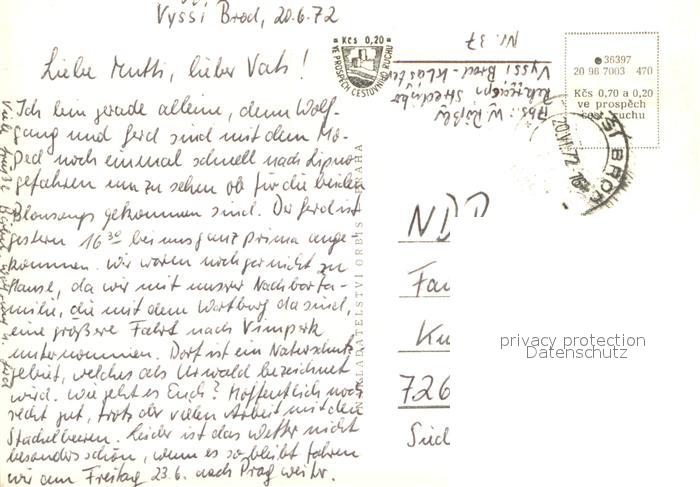 Vyšší Brod, 20.6.72
Liebe Mutti, lieber Vati!
Ich bin gerade alleine, denn Wolf-
gang und Gerd sind mit dem Mo-
ped noch einmal schnell nach Lipno
gefahren um zu sehen ob für die beiden
gekommen sind. Der Gerd ist
gestern 16³⁰ bei uns ganz prima ange-
kommen. Wir waren noch gar nicht zu
Hause, da wir mit unserer Nachbarfa-
milie, die mit dem Wartburg da sind,
eine größere Fahrt nach Vimperk
unternommen. Dort ist ein Naturschutz-
gebiet, welches als Urwald bezeichnet
wird. Wie geht es Euch? Hoffentlich noch
recht gut, trotz der vielen Arbeit mit den
Stachelbeeren. Leider ist das Wetter nicht
besonders schön, wenn es so bleibt fahren
wir am Freitag 23.6. nach Prag weiter.
Viele
Kčs 0,20
VE PROSPĚCH CESTOVNÍHO RUCHU
Abs.: W.
středisko
Vyšší Brod - Klášter
Nr. 37
36397
20 96 7003 470
Kčs 0,70 a 0,20
ve prospěch
cest. ruchu
ŠÍ BROD
20.VI.72-16
NAKLADATELSTVÍ ORBIS PRAHA
Fa
Ku
726
privacy protection
Datenschutz